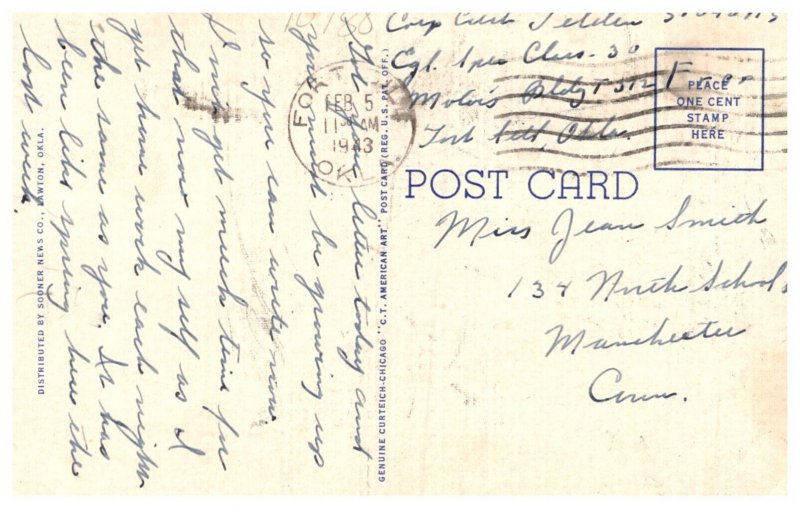 Corp Curt
Cgl. Spec Class. 30
Motors Bldg T 512
Fort Sill, Okla.
FORT SILL
FEB 5
1130 AM
1943
OK
PLACE
ONE CENT
STAMP
HERE
POST CARD
Miss Jean Smith
134 North School
Manchester
Conn.
Got your letter today and
you must be growing up
so you can write now.
I don't get much time for
that now my self as I
get home work each night
the same as you. It has
been like spring here the
last week.
GENUINE CURTEICH-CHICAGO "C.T. AMERICAN ART" POST CARD (REG. U.S. PAT. OFF.)
DISTRIBUTED BY SOONER NEWS CO., LAWTON, OKLA.